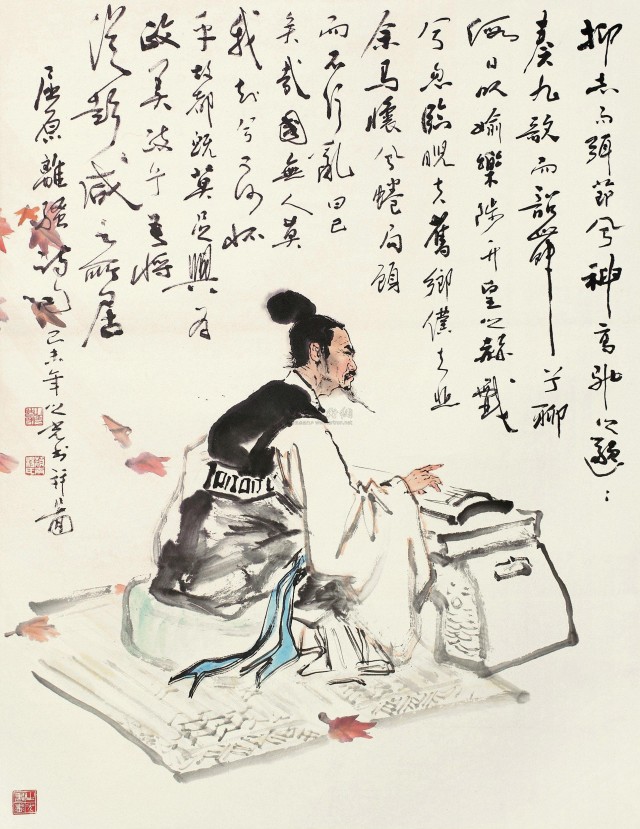 抑志而弭節兮神高馳之邈：
奏九歌而韶舞兮聊
假日以婾樂陟升皇之赫戲
兮忽臨睨夫舊鄉僕夫悲
余馬懷兮蜷局顧
而不行亂曰已
矣哉國無人莫
我知兮又何懷
乎故都既莫足與为
政美政兮吾將
從彭咸之所居
屈原離騷詩句
己未年